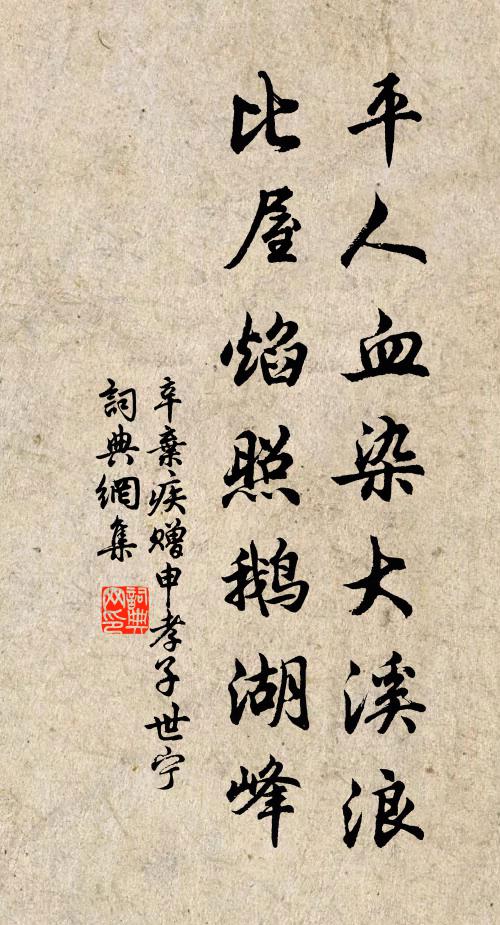 平人血染大溪浪
比屋焰照鹅湖峰
辛棄疾赠申孝子世宁
詞典網集
詞典网印